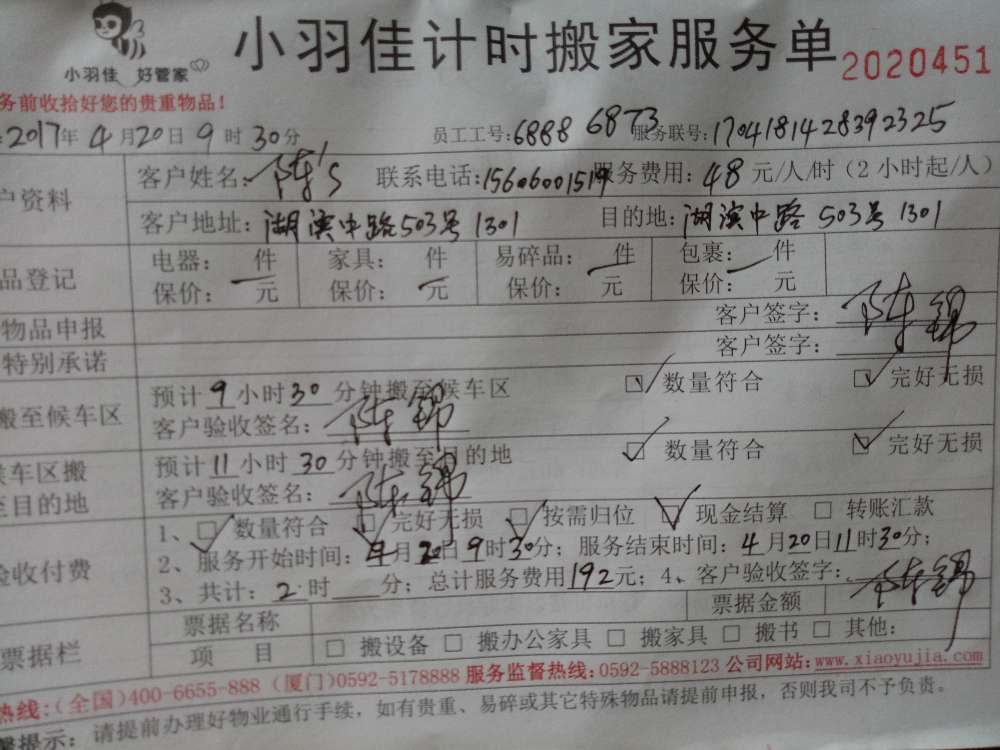 小羽佳 好管家
小羽佳计时搬家服务单
2020451
务前收拾好您的贵重物品！
2017年4月20日9时30分 员工工号:6888 6873 服务联号:1704181428392325
户资料 客户姓名:陈's 联系电话:15606001514 服务费用:48元/人/时(2小时起/人)
客户地址:湖滨中路503号1301 目的地:湖滨中路503号1301
品登记 电器: 件 家具: 件 易碎品: 件 包裹: 件
保价: 元 保价: 元 保价: 元 保价: 元
物品申报 客户签字: 陈锦
特别承诺 客户签字:
搬至候车区 预计9小时30分钟搬至候车区 数量符合 完好无损
客户验收签名: 陈锦
候车区搬至目的地 预计11小时30分钟搬至目的地 数量符合 完好无损
客户验收签名: 陈锦
验收付费 1、数量符合 完好无损 按需归位 现金结算 转账汇款
2、服务开始时间:4月20日9时30分; 服务结束时间:4月20日11时30分;
3、共计:2时 分; 总计服务费用192元; 4、客户验收签字: 陈锦
票据栏 票据名称 票据金额
项 目 搬设备 搬办公家具 搬家具 搬书 其他:
热线:(全国)400-6655-888 (厦门)0592-5178888 服务监督热线:0592-5888123 公司网站:www.xiaoyujia.com
提示: 请提前办理好物业通行手续，如有贵重、易碎或其它特殊物品请提前申报，否则我司不予负责。